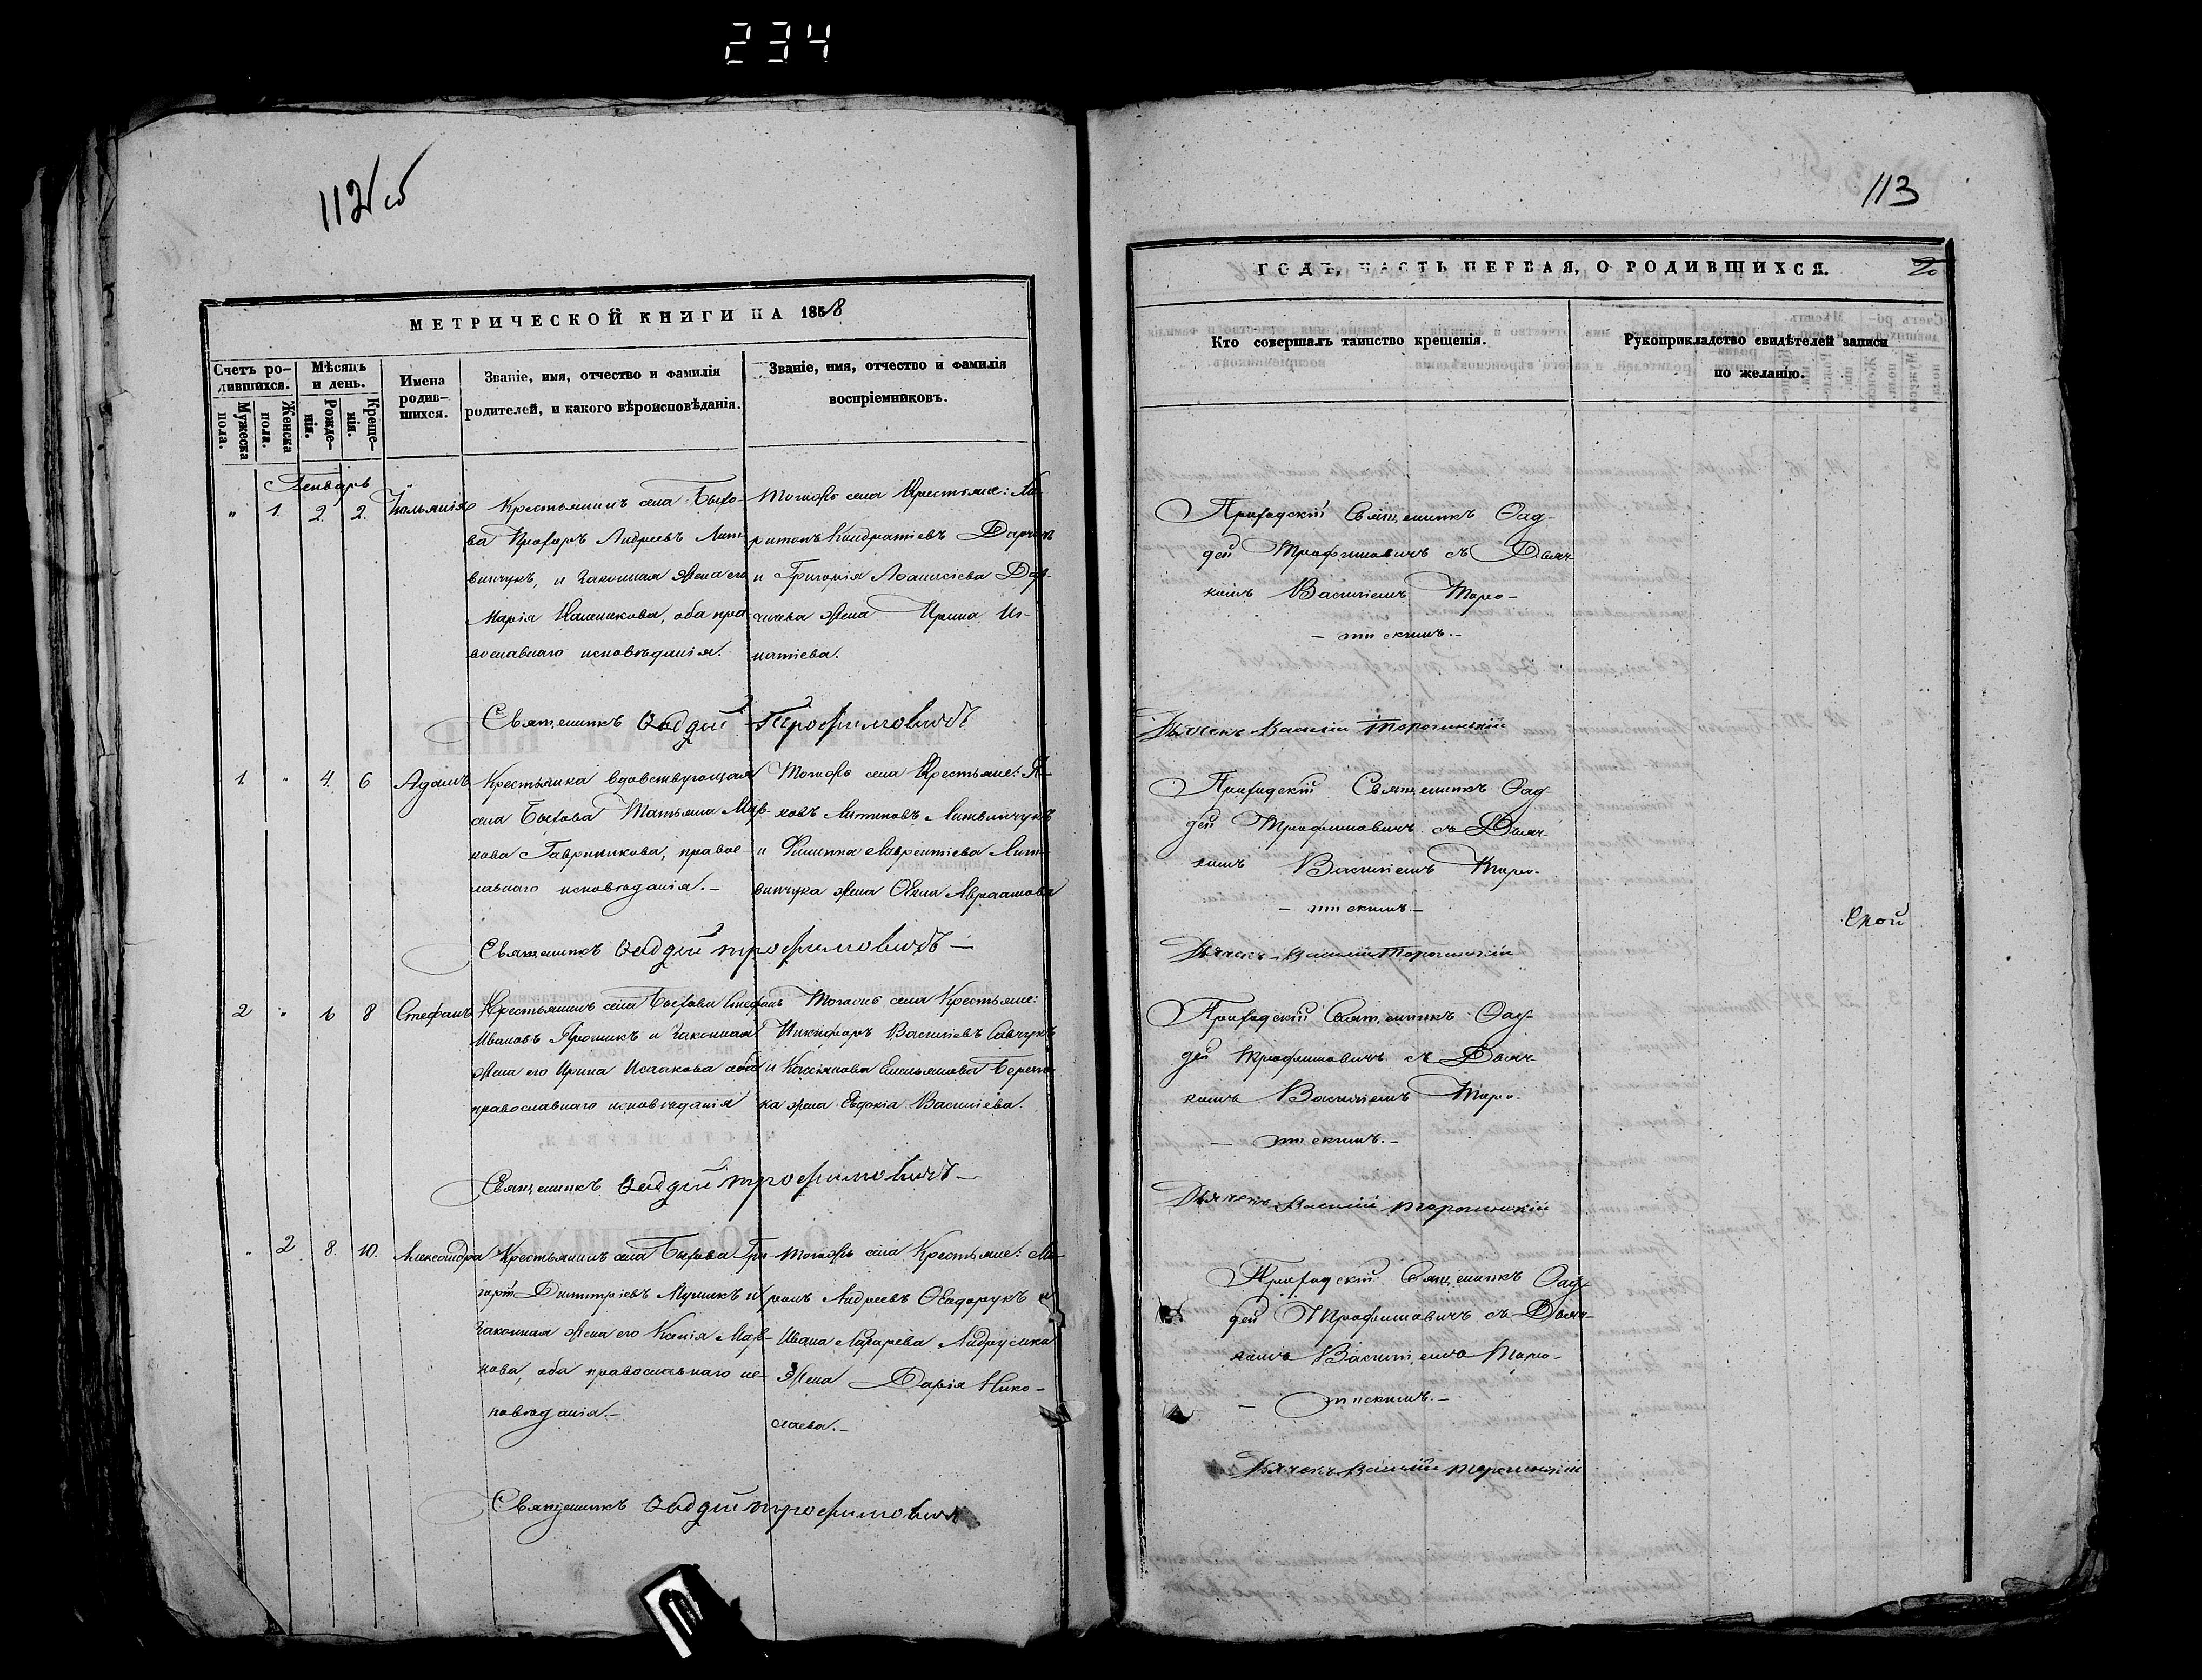 234
112 об
МЕТРИЧЕСКОЙ КНИГИ НА 1858
Счетъ ро-
дившихся.
Мужеска
пола.
Женска
пола.
Мѣсяцъ
и день.
Рожде-
нія.
Креще-
нія.
Имена
родив-
шихся.
Званіе, имя, отчество и фамилія
родителей, и какого вѣроисповѣданія.
Званіе, имя, отчество и фамилія
воспріемниковъ.
Генварь
" 1. 2. 2. Іюльянія
Крестьянинъ села Быхо-
ва Прохоръ Андреевъ Лит-
винчукъ, и законная жена его
Марія Калиникова, оба пра
вославнаго исповѣданія.
Тогожъ села Крестьяне: Ха-
ритонъ Кондратіевъ
и Григорія Аѳанасіева
жена Ирина Иг-
натіева.
Священникъ Ѳаддей Трофимовичъ
1. " 4. 6 Адамъ
Крестьянка вдовствующая
села Быхова Татьяна Мар-
кова Гавриликова, правос-
лавнаго исповѣданія.-
Тогожъ села Крестьяне: Я-
ковъ Антиповъ Литвинчукъ
и Филиппа Лаврентіева Лит-
винчука жена Ѳекла Авраамова
Священникъ Ѳаддей Трофимовичъ-
2 " 6 8 Стефанъ
Крестьянинъ села Быхова Стефанъ
Ивановъ и законная
жена его Ирина Исаакова оба
православнаго исповѣданія
Тогожъ села Крестьяне:
Никифоръ Василіевъ Савчукъ
и Касіянова Емельянова
ка жена Евдокія Василіева.
Священникъ Ѳаддей Трофимовичъ-
" 2. 8. 10. Александра
Крестьянинъ села Быхова Гри-
горій Димитріевъ и
законная жена его Ксенія Мар-
кова, оба православнаго ис-
повѣданія.-
Тогожъ села Крестьяне: Ми-
ронъ Андреевъ Ѳеодорукъ и
Ивана Лазарева
жена Дарія Нико-
лаева.-
Священникъ Ѳаддей Трофимовичъ
113
ГОДЪ, ЧАСТЬ ПЕРВАЯ, О РОДИВШИХСЯ.
Кто совершалъ таинство крещенія.
Рукоприкладство свидѣтелей записи
по желанію.
Приходскій Священникъ Ѳад-
дей Трофимовичъ съ Дьяч-
комъ Василіемъ Торо-
Дьячекъ Василій
Приходскій Священникъ Ѳад-
дей Трофимовичъ съ Дьяч-
комъ Василіемъ Торо-
Дьячекъ Василій
Приходскій Священникъ Ѳад-
дей Трофимовичъ съ Дьяч-
комъ Василіемъ Торо-
Дьячекъ Василій
Приходскій Священникъ Ѳад-
дей Трофимовичъ съ Дьяч-
комъ Василіемъ Торо-
Дьячекъ Василій